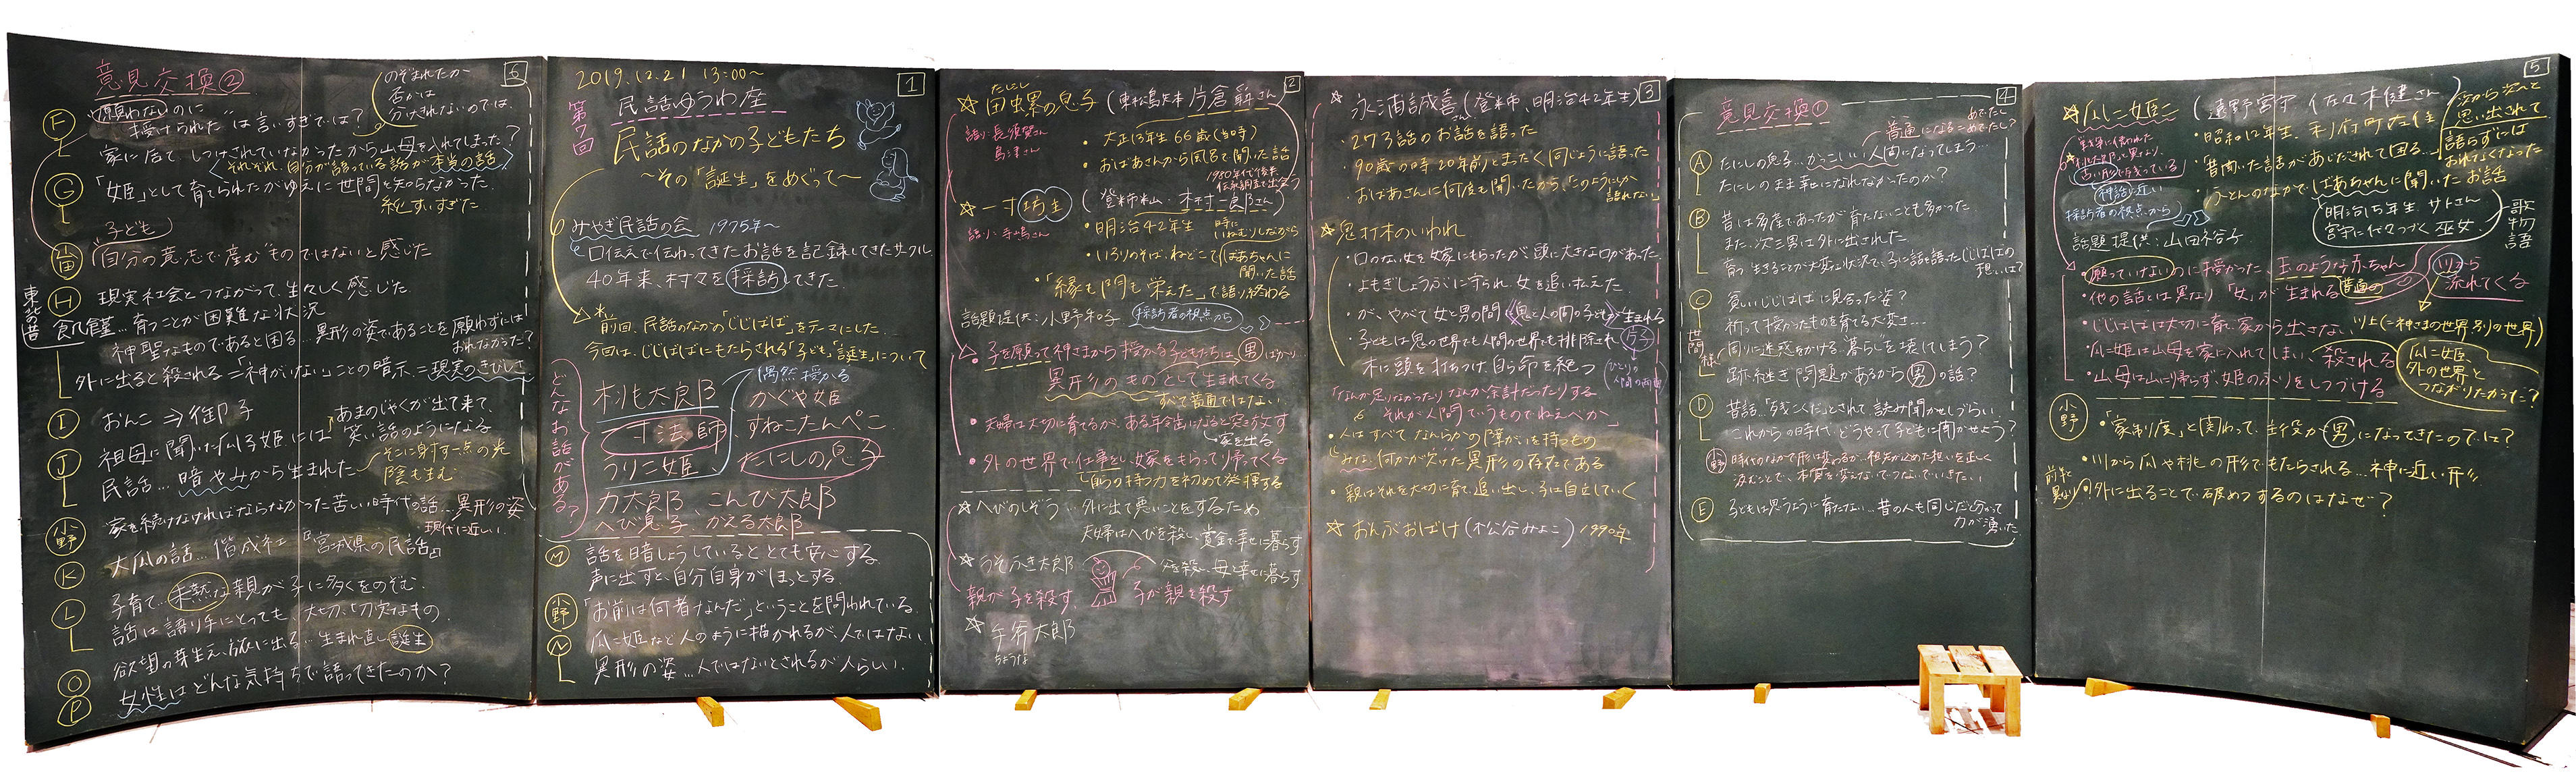 1
2019.12.21 13:00〜
第7回
民話ゆうわ座
民話のなかの子どもたち
〜その「誕生」をめぐって〜
みやぎ民話の会 1975年〜
口伝えで伝わってきたお話を記録してきたサークル
40年来、村々を採訪してきた.
前回、民話のなかの「じじばば」をテーマにした.
今回は、じじばばにもたらされる「子ども」「誕生」について
どんなお話がある?
桃太郎
一寸法師
うりこ姫
偶然授かる
かぐや姫
すねこたんぺこ
たにしの息子
力太郎、こんび太郎
へび息子、かえる太郎
M 話を暗しょうしているととても安心する.
声に出すと、自分自身がほっとする.
小野 「お前は何者なんだ」ということを問われている.
N 瓜こ姫など人のように描かれるが、人ではない
異形の姿…人ではないとされるが人らしい.
2
☆田虫累の息子
たにし
語り:長須賀さん
島津さん
・大正13年生 66歳(当時)
・おばあさんから風呂で聞いた話
1980年代後半
☆一寸坊主
語り:寺嶋さん
・明治42年生
時に
いねむりしながら
・いろりのそば、ねどこでばあちゃんに
聞いた話
・「縁も門も栄えた」で語り終わる
話題提供:小野和子 採訪者の視点から
・子を願って神さまから授かる子どもたちは男ばかり…
異形のものとして生まれてくる
すべて普通ではない
・夫婦は大切に育てるが、ある年令になると突き放す
家を出る
・外の世界で仕事をし、嫁をもらって帰ってくる
自らの持つ力を初めて発揮する
☆へびのしぞう…外に出て悪いことをするため
夫婦はへびを殺し、賞金で幸せに暮らす
☆うそふき太郎
父を殺し、母と幸せに暮らす.
親が子を殺す.
子が親を殺す
☆手斧太郎
ちょうな
3
☆永浦誠喜さん(登米市、明治42年生)
・273話のお話を語った
・90歳の時20年前とまったく同じように語った
・おばあさんに何度も聞いたから、「このようにしか
語れない」
☆鬼打木のいわれ
・口のない女を嫁にもらったが頭に大きな口があった.
・よもぎしょうぶに守られ女を追い払えた
・が、やがて女と男の間《鬼と人の間の子ども》生まれる
片子
・子どもは鬼の世界でも人間の世界でも排除され
木に頭を打ちつけ、自ら命を絶つ
「なんか足りなかったり なんか余計だったりする
それが人間でいうものでねえべか」
・人はすべて なんらかの「障がい」を持つもの
みな、何かが欠けた異形の存在である
・親はそれを大切に育て、追い出し、子は自立していく
☆おんぶおばけ(松谷みよこ) 1990年
4
意見交換①
普通になる=めでたし?
めでたし
A たにしの息子…かっこいい人間になってしまう…
たにしのまま幸せになれなかったのか?
B 昔は多産であったが育たないことも多かった
また、次三男は外に出された
育つ、生きることが大変な状況で、子に話を語ったじじばばの
想いは?
C 貧しいじじばばに見合った姿?
祈って授かったものを育てる大変さ…
周りに迷惑をかける、暮らしを壊してしまう?
世間様
跡継ぎ問題があるから男の話?
D 昔話…「残こくだ」とされて、読み聞かせしづらい
これからの時代、どうやって子どもに聞かせよう?
小野 時代のなかで形は変わるが、祖先が込めた想いを正しく
汲むことで、本質を変えないでつないでいきたい
E 子どもは思うように育たない…昔の人も同じだと分かって
力が湧いた
5
☆瓜こ姫こ(遠野宮守 佐々木健さん)
・昭和12年生、利府町在住
・昔聞いた話があじだされて困る…
次から次へと
思い出されて
語らずには
おれなくなった
・ふとんのなかでばあちゃんに聞いたお話
明治15年生、サトさん
宮守に代々つづく巫女
歌物語
古い形に残っている
神話に近い
採訪者の視点から
話題提供:山田裕子
・願っていないのに授かった、玉のような赤ちゃん
川から
流れてくる
・他の話とは異なり「女」が生まれる
普通の
・じじばばは大切に育て、家から出さない
川上(=神さまの世界、別の世界)
・瓜こ姫は山母を家に入れてしまい、殺される
・山母は山に帰らず、姫のふりをしつづける
瓜こ姫、
外の世界と
つながりたかった?
小野 ・「家制度」と関わって、主役が男になってきたのでは?
・川から瓜や桃の形でもたらされる…神に近い形
前半と
異なり
・外に出ることで破めつするのはなぜ?
6
意見交換②
のぞまれたか
否かは
分けきれないのでは.
F 「願わないのに
授けられた」は言いすぎでは?
家に居て、しつけされていなかったから山母を入れてしまった?
それぞれ、自分が語っている話が本当の話
G 「女姫」として育てられたがゆえに世間を知らなかった.
純すいすぎた
子ども
山田 「自分の意志で産む」ものではないと感じた
H 現実社会とつながって、生々しく感じた.
東北の昔
飢饉…育つことが困難な状況
神聖なものであると困る…異形の姿であることを願わずには
おれなかった?
外に出ると殺される=「神がいない」ことの暗示、=現実のきびしさ
I おんこ ⇒ 御子
J 祖母に聞いた瓜子姫には
あまのじゃくが出て来て、
笑い話のようになる
民話…暗やみから生まれた
そこに身す一点の光
陰も生む
小野 家を続けなければならなかった苦しい時代の話…異形の姿
・現代に近しい
K 大瓜の話…偕成社『宮城県の民話』
L 子育て…未熟な親が子に多くをのぞむ.
話は語り手にとっても、大切、切実なもの.
欲望の芽生え、旅に出る…生まれ直し 誕生
O
P 女性はどんな気持ちで語ってきたのか?